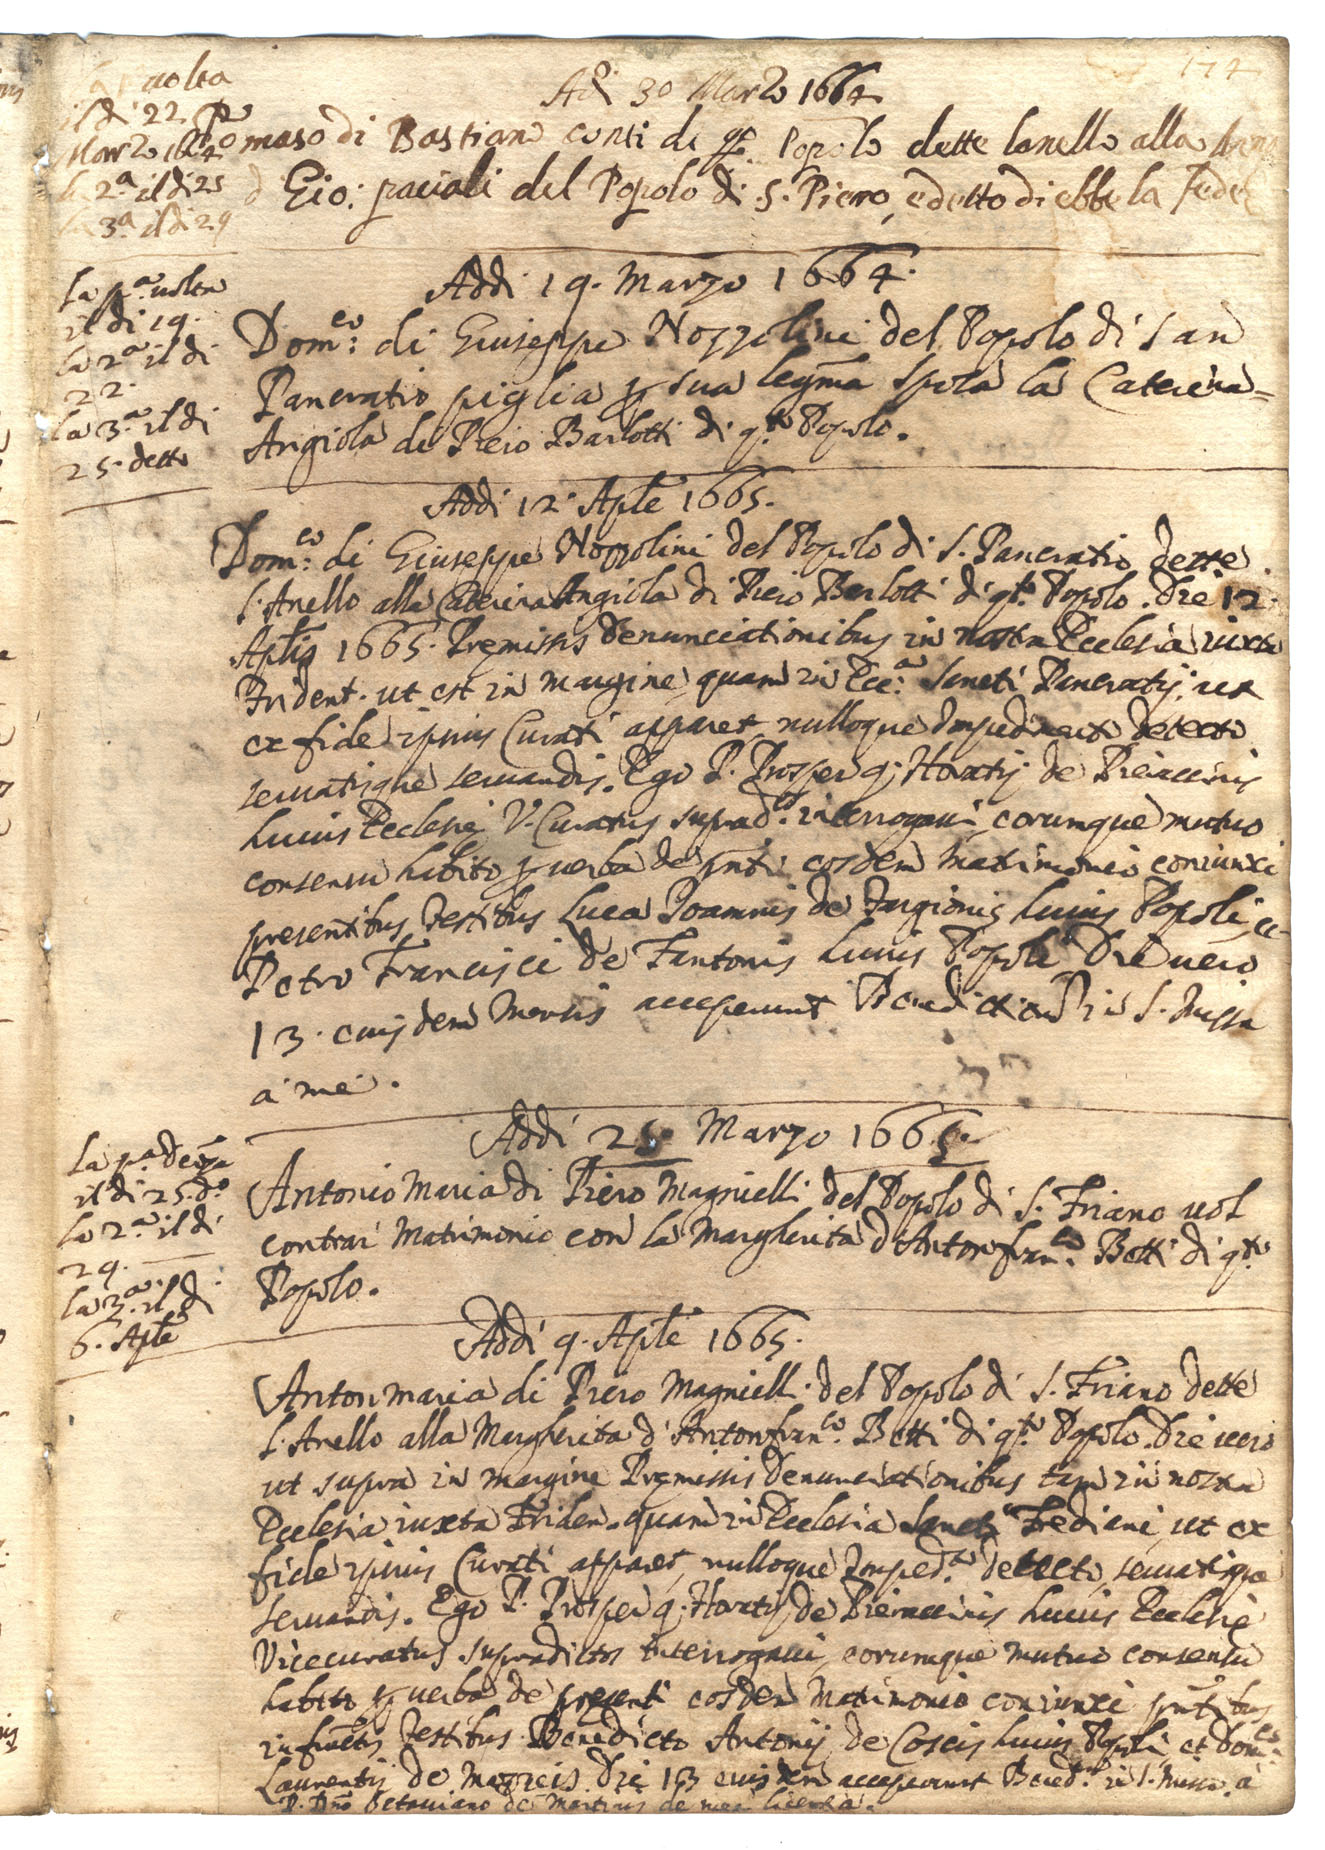 174
uolta
il dì 22
Marzo 1664
la 2.ª il dì 25
la 3.ª il dì 29
Adì 30 Marzo 1664
maso di Bastiano conti di q.º Popolo dette lanello alla
Gio: paciali del Popolo di S. Piero, e detto di ebbe la fede
La p.ª uolta
il di 19.
la 2.ª il di
22.
la 3.ª il di
25. detto
Addi 19. Marzo 1664.
Dom.co di Giuseppe Nozzolini del Popolo di San
Pancratio piglia p sua legma sposa la Caterina=
Angiola di Piero Barlotti di q.to Popolo.
Addi 12. Aple 1665.
Dom.co di Giuseppe Nozzolini del Popolo di S. Pancratio dette
l'Anello alla Caterina Angiola di Piero Berlotti di q.to Popolo. Die 12.
Aplis 1665. Premissis Denunciationibus in nostra Ecclesia iuxta
Trident. ut est in margine, quam in Ecc.a Sancti Pancratij, ut
ex fide ipsius Curati apparet, nulloque Impedimento detecto
seruatisque seruandis. Ego P. Prosper q. Horatij de Pieraccinis
huius Ecclesie V. Curatus suprad.os interrogaui, eorumque mutuo
consensu habito p uerba de pnti eosdem Matrimonio coniunxi
presentibus Testibus Luca Joannis de Targionis huius Popoli, et
Petro Francisci de Fantonis huius Popoli Die uero
13. eiusdem Mensis acceperunt Benedictionem in S. Missa
a me.
La p.ª denza
il di 25. d.o
la 2.ª il di
29.
la 3.ª il di
6. Aple
Addi 25. Marzo 1665.
Antonio Maria di Piero Magnielli del Popolo di S. Friano uol
contrar Matrimonio con la Margherita d'Antonfran.co Betti di q.to
Popolo.
Addi 9. Aple 1665.
Antonmaria di Piero Magnielli del Popolo di S. Friano dette
l'Anello alla Margherita d'Antonfran.co Betti di q.to Popolo. Die uero
ut supra in margine Premissis Denunciationibus tam in nostra
Ecclesia iuxta Triden. quam in Ecclesia Sancti Frediani, ut ex
fide ipsius Curati apparet, nulloque Imped.to detecto, seruatisque
seruandis. Ego P. Prosper q. Horatij de Pieraccinis huius Ecclesie
Vicecuratus supradictos interrogaui, eorumque mutuo consensu
habito p uerba de presenti eosdem Matrimonio coniunxi pntibus
infrictis Testibus Benedicto Antonij de Coscis huius Popoli, et Dom.co
Laurentij de Die 13 eiusdem acceperunt Bened.em in S. Missa a
P. Dno Octauiano de Martinis de mea licentia.